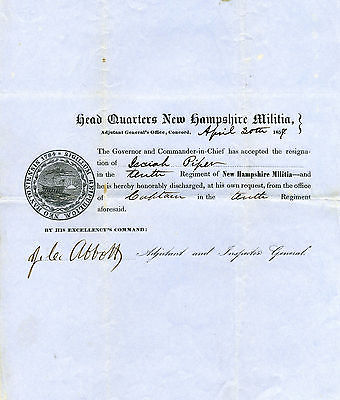 Head Quarters New Hampshire Militia,
Adjutant General's Office, Concord, April 20th 1857
The Governor and Commander-in-Chief has accepted the resigna-
tion of Isaiah Piper
in the tenth Regiment of New Hampshire Militia—and
he is hereby honorably discharged, at his own request, from the office
of Captain in the tenth Regiment
aforesaid.
BY HIS EXCELLENCY'S COMMAND:
Abbott Adjutant and Inspector General.
SIGILLUM REIPUBLICÆ NEO HANTONIENSIS 1784